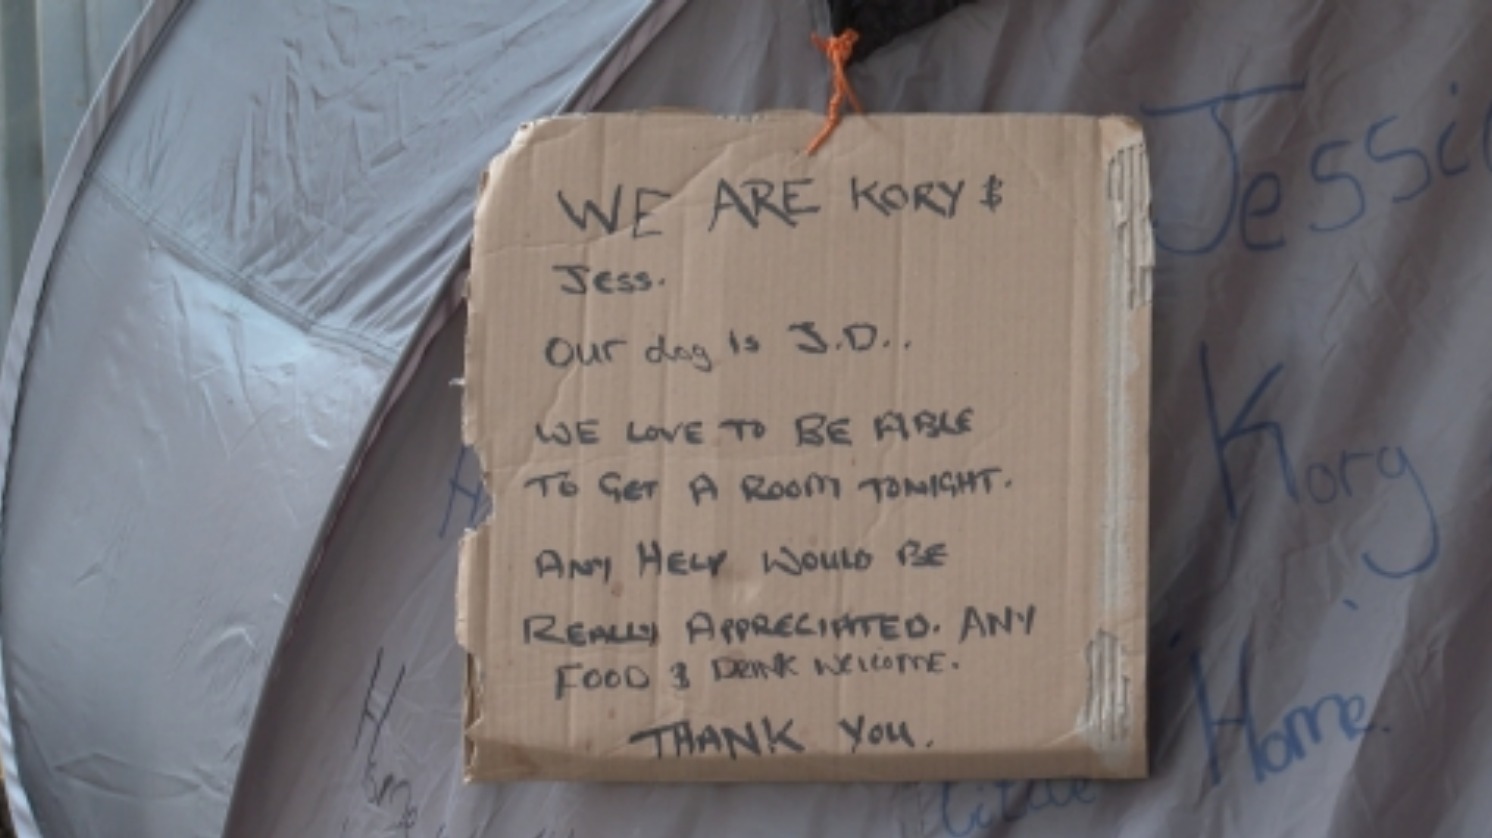 WE ARE KORY &
Jess.
Our dog is J.D..
WE LOVE TO BE ABLE
TO GET A ROOM TONIGHT.
ANY HELP WOULD BE
REALLY APPRECIATED. ANY
FOOD & DRINK WELCOME.
THANK YOU.
Jessic
Kory
Home.
Little